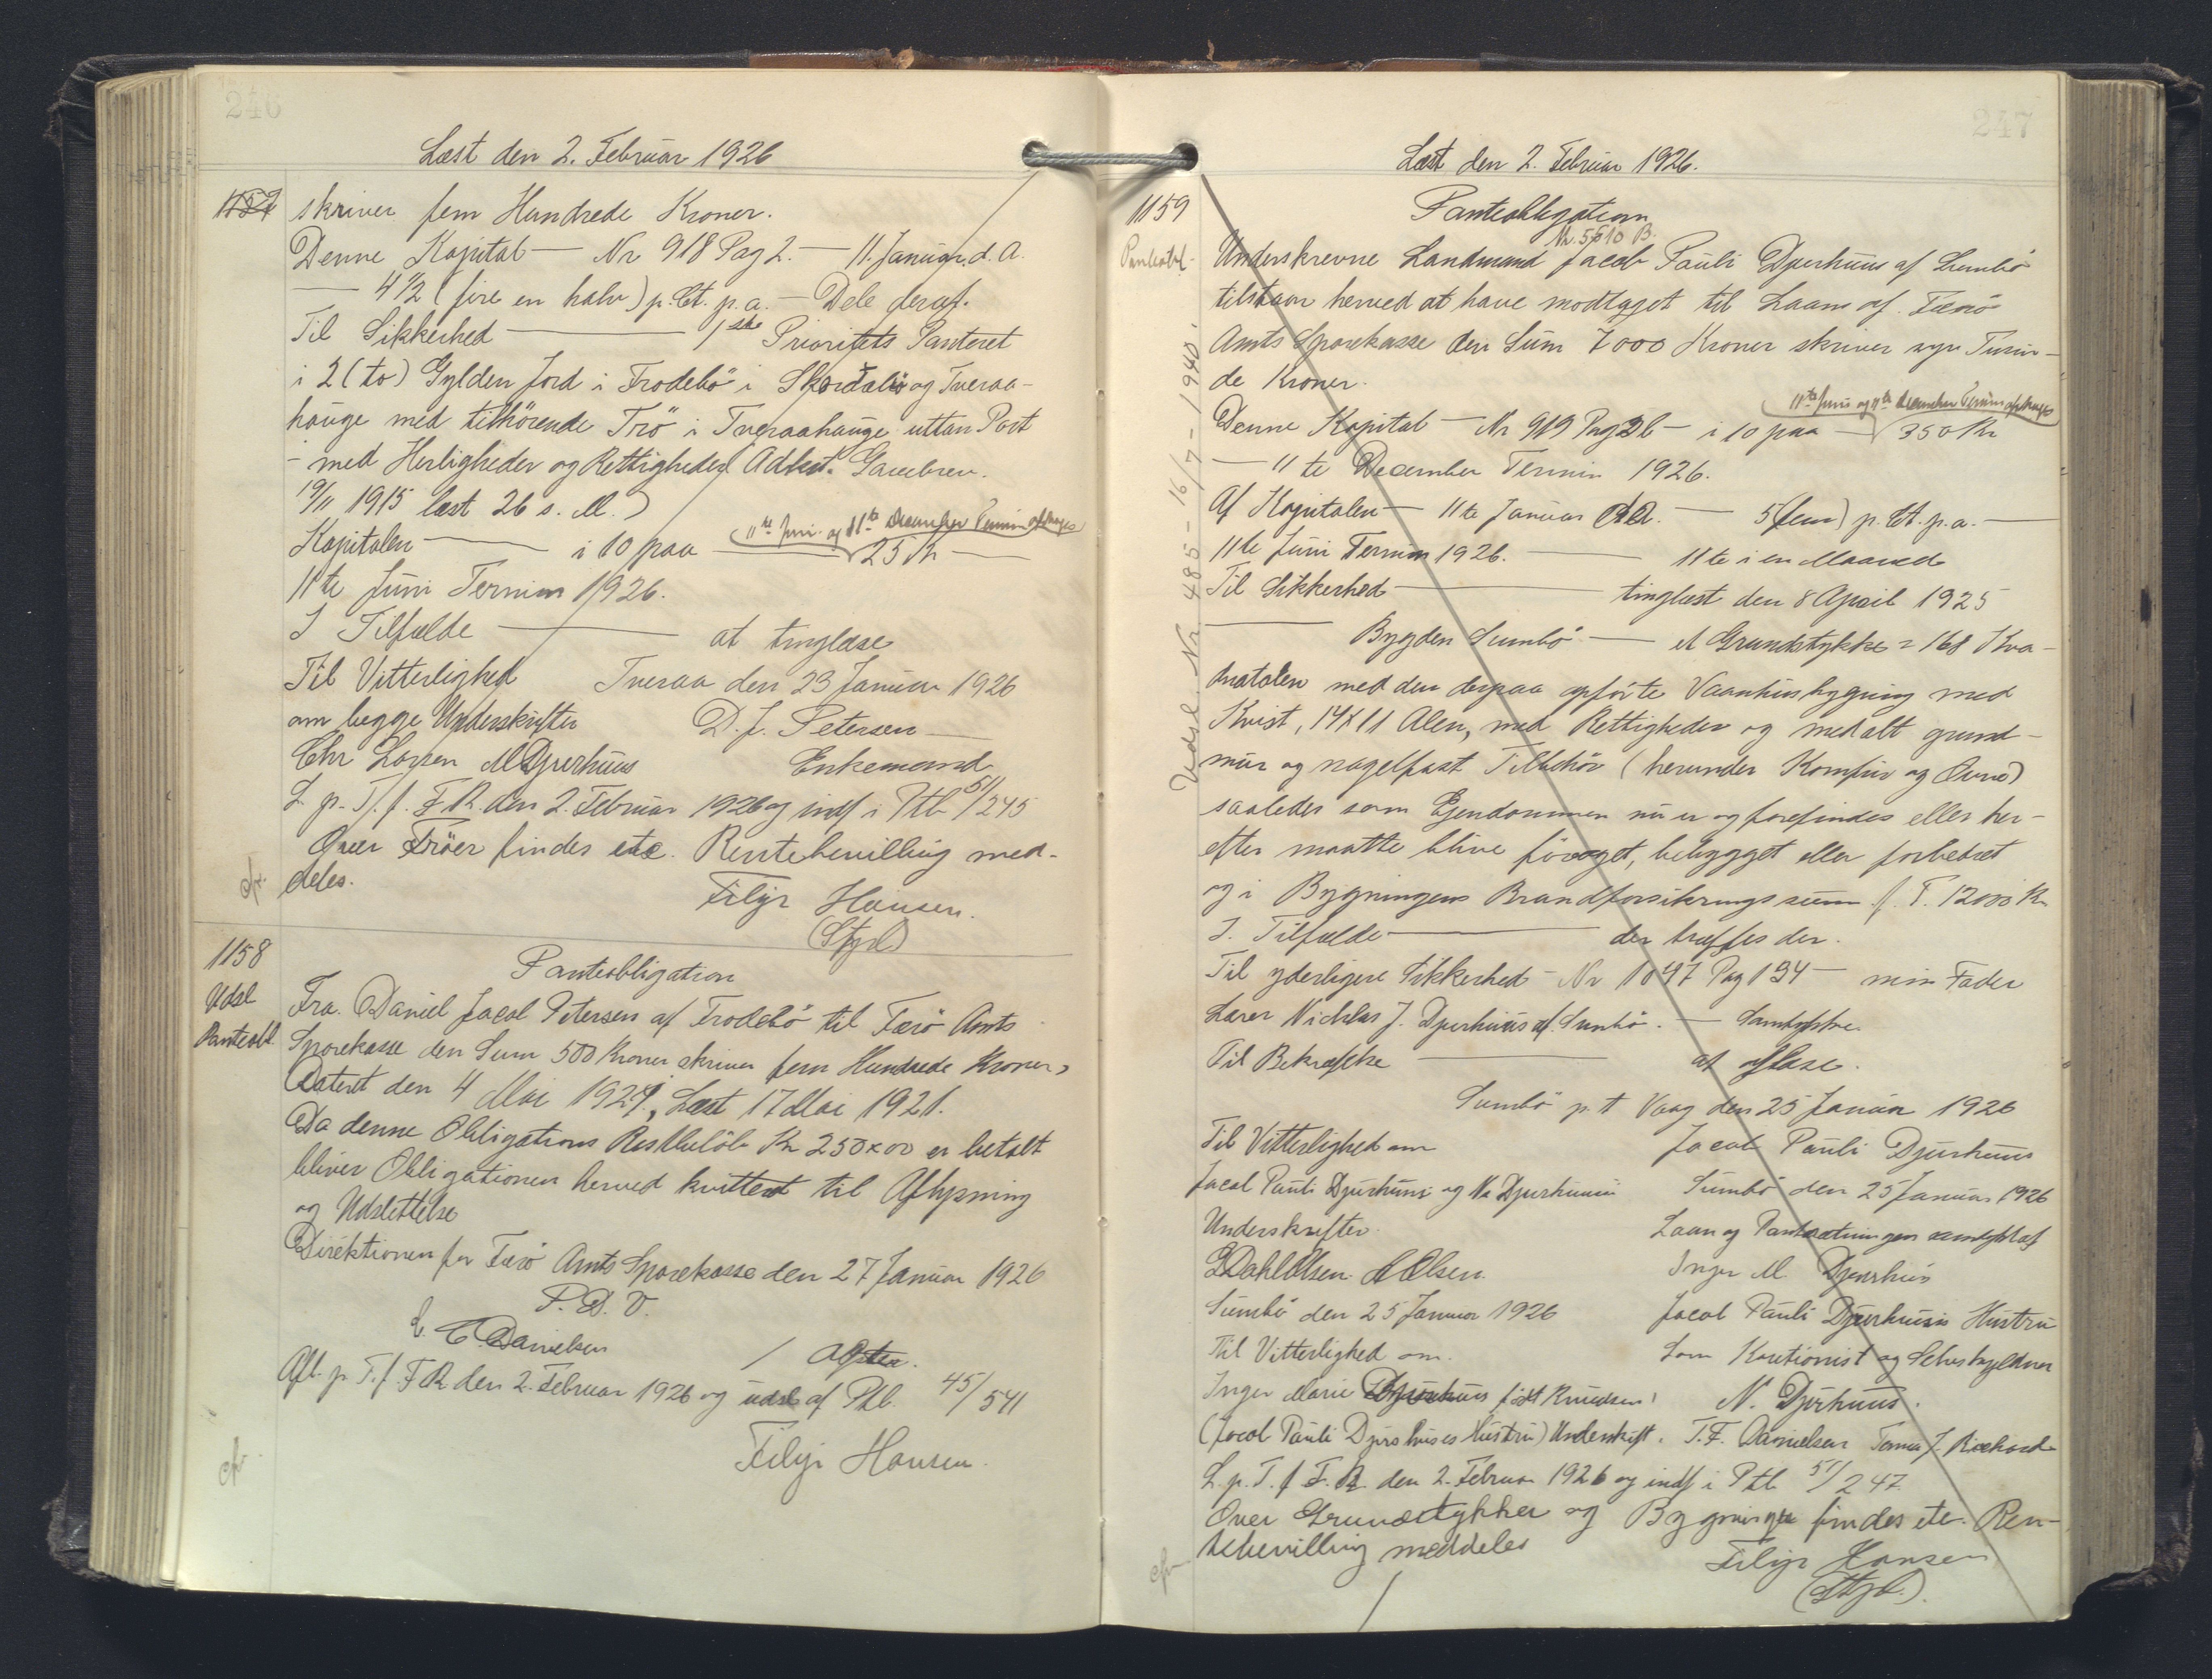 246
Læst den 2. Februar 1926
1157
skriver fem Hundrede Kroner.
Denne Kapital — Nr 918 Pag 2. — 11. Januar d. A.
— 4 1/2 (fire en halv) p. Ct. p. a. — Dele deraf.
Til Sikkerhed — 1ste Prioritets Panteret
i 2 (to) Gylden Jord i Frodebö i og Tveraa-
hauge med tilhörende Trö i Tveraahauge uttan Port
- med Herligheder og Rettigheder (Adkst. Gavebrev.
19/11 1915 læst 26 s. M.)
11te Juni og 11te December Termin
Kapitalen — i 10 paa — 25 Kr —
11te Juni Termin 1926.
I Tilfælde — at tinglæse
Til Vitterlighed Tveraa den 23 Januar 1926
om begge Underskrifter D. J. Petersen —
Chr Larsen M Djurhuus Enkemand
L. p. T. f. F. R. den 2. Februar 1926 og indf i Ptb 51/245
Over Tröer findes etc. Rentebevilling med-
deles.
Filip Hansen.
(Stpl)
1158
Udsl
Panteobl.
Panteobligation
Fra Daniel Jacob Petersen af Frodebö til Færö Amts
Sparekasse den Sum 500 Kroner skriver fem Hundrede Kroner,
Dateret den 4 Mai 1921, Læst 17 Mai 1921.
Da denne Obligations Restbelöb Kr 250×00 er betalt
bliver Obligationen herved kvitteret til Aflysning
og Udslettelse
Direktionen for Færö Amts Sparekasse den 27 Januar 1926
P. D. V.
C. Danielsen /
Afl. p. T. f. F R den 2. Februar 1926 og udsl af Ptb. 45/541
Filip Hansen.
247
Læst den 2. Februar 1926.
1159
Panteobl.
Panteobligation
Nr. 5510 B.
Underskrevne Landmand Jacob Pauli Djurhuus af Sumbö
tilstaar herved at have modtaget til Laans af Færö
Amts Sparekasse den Sum 7000 Kroner skriver syv Tusin-
de Kroner.
11te Juni og 11te December Termin
Denne Kapital — Nr 919 Pag 2b — i 10 paa — 350 Kr
— 11te December Termin 1926.
Af Kapitalen — 11te Januar d A. — 5 (fem) p. Ct. p. a. —
11te Juni Termin 1926. — 11te i en Maaned
Til Sikkerhed — tinglæst den 8 April 1925
— Bygden Sumbö — et Grundstykke = 168 Kva-
dratalen med den derpaa opförte Vaanhusbygning med
Kvist, 14×11 Alen, med Rettigheder og med alt grund-
mur og nagelfast Tilbehör (herunder Komfur og Ovne)
saaledes som Ejendommen nu er og forefindes eller her-
efter maatte blive foröget, bebygget eller forbedret
og i Bygningens Brandforsikringssum f. T. 12000 Kr
I Tilfælde — der træffes der.
Til yderligere Sikkerhed — Nr 1047 Pag 194 — min Fader
Lærer Nicklas J. Djurhuus af Sumbö. — Samtykke.
Til Bekræftke — at aflæse.
Sumbö p. t Vaag den 25 Januar 1926
Til Vitterlighed om Jacob Pauli Djurhuus
Jacob Pauli Djurhuus og N. Djurhuus Sumbö den 25 Januar 1926
Underskrifter. Laan og Pantsætningen samtykkes
G Dahl Olsen. Olsen. Inger M Djurhuus
Sumbö den 25 Januar 1926 Jacob Pauli Djurhuus Hustru
Til Vitterlighed om. Som Kautionist og Selvskyldner
Inger Marie Djurhuus födt Knudsen, N. Djurhuus.
(Jacob Pauli Djurhuses Hustru) Underskrift. T. F. Danielsen
L. p. T. f F. R. den 2. Februar 1926 og indf i Ptb 51/247
Over Grundstykker og Bygninger findes etc. Ren-
tebevilling meddeles
Filip Hansen
(Stpl.)
Udsl. Nr. 485 - 16/7 - 1940.